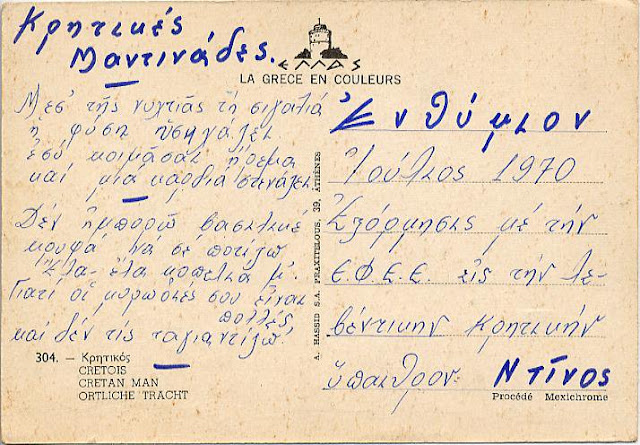 Κρητικές
Μαντινάδες.
ΕΛΛΑΣ
LA GRECE EN COULEURS
Μεσ' τῆς νυχτιᾶς τή σιγαλιά
ἡ φύση ἡσυχάζει
ἐσύ κοιμᾶσαι ἤρεμα
καί μιά καρδιά στενάζει
Δέν ἠμπορῶ βασιλικέ
κρυφά νά σέ ποτίζω
Ἔλα - ἔλα κοπελιά μ'
Γιατί οἱ μυρωδιές σου εἶναι
πολλές
καί δέν τίς ταγιαντίζω
304. — Κρητικός
CRETOIS
CRETAN MAN
ORTLICHE TRACHT
A. HASSID S.A. PRAXITELOUS, 39, ATHÈNES
Ἐνθύμιον
Ἰούλιος 1970
Ἐξόρμησις μέ τήν
Ε.Φ.Ε.Ε. εἰς τήν λε-
βέντικην Κρητικήν
ὕπαιθρον. Ντίνος
Procédé Mexichrome